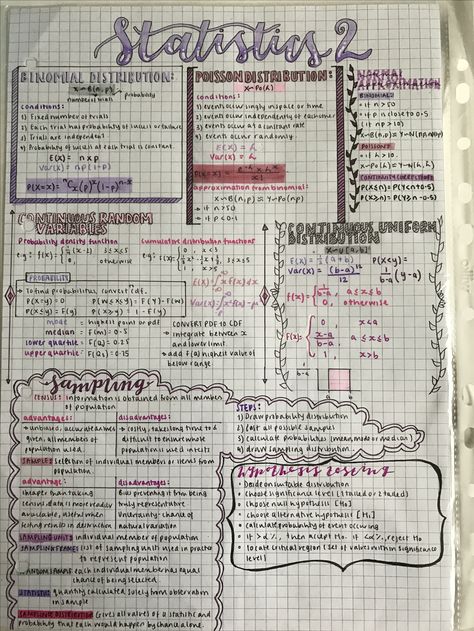 Statistics 2
BINOMIAL DISTRIBUTION:
X~B(n,p)
number of trials
probability
conditions:
1) Fixed number of trials
2) Each trial has probability of success or failure
3) Trials are independent
4) Probability of success at each trial is constant.
E(X) = n×p
Var(X) = np(1-p)
P(X=x) = ⁿCₓ(p)ˣ(1-p)ⁿ⁻ˣ
POISSON DISTRIBUTION:
X~Po(λ)
conditions:
1) events occur singly in space or time
2) events occur independently of each other
3) events occur at a constant rate
4) events occur randomly
E(X) = λ
Var(X) = λ
approximation from binomial:
X~B(n,p) ≈ Y~Po(np)
→ if n>50
→ if p<0.1
NORMAL
APPROXIMATION
BINOMIAL:
→ if n>50
→ if p is close to 0.5
→ if np>10
POISSON:
→ if λ>10.
CONTINUITY CORRECTION:
CONTINUOUS RANDOM
VARIABLES
probability density function
cumulative distribution functions
PROBABILITY
→ to find probabilities, convert cdf.
P(X=y) = 0
P(X≤y) = F(y)
P(X>y) = 1 - F(y)
mode = highest point of pdf
median = F(m) = 0.5
lower quartile: F(Q₁) = 0.25
upper quartile: F(Q₃) = 0.75
CONVERT PDF TO CDF
→ integrate between x
and lower limit.
→ add F(x) highest value of
below range
CONTINUOUS UNIFORM
DISTRIBUTION
X~U[a,b]
E(X) = ½(a+b)
Var(X) = (b-a)²/12
f(x) = { 1/(b-a), a≤x≤b
0, otherwise
F(x) = { 0, x<a
(x-a)/(b-a), a≤x≤b
1, x>b
a b
Sampling
CENSUS: information is obtained from all member
of population
advantages:
disadvantages:
→ unbiased, accurate as
given all members of
population used.
→ costly, takes long time to do
difficult to ensure whole
population is used in tests
SAMPLE: selection of individual members or items from
population.
advantage:
disadvantages:
cheaper than taking
census, data is more readily
available, useful when
testing results in destruction
Bias preventing it from being
truly representative
Uncertainty: chance of
natural variation
SAMPLING UNITS: individual member of population
SAMPLING FRAME: list of sampling units used in practice
to represent population
RANDOM SAMPLE: each individual member has equal
chance of being selected.
STATISTIC: quantity calculated solely from observation
in sample
SAMPLING DISTRIBUTION: gives all values of a statistic and
probability that each would happen by chance alone.
STEPS:
1) Draw probability distribution
2) List all possible samples
3) calculate probabilities (mean, mode or median)
4) draw sampling distribution
hypothesis testing
• Decide on suitable distribution
• choose significance level (1 tailed or 2 tailed)
• choose null hypothesis [H₀]
• choose alternative hypothesis [H₁]
• calculate probability of event occurring
• if >α%, then accept H₀. if <α%, reject H₀
• locate critical region (set of values within significance
level)